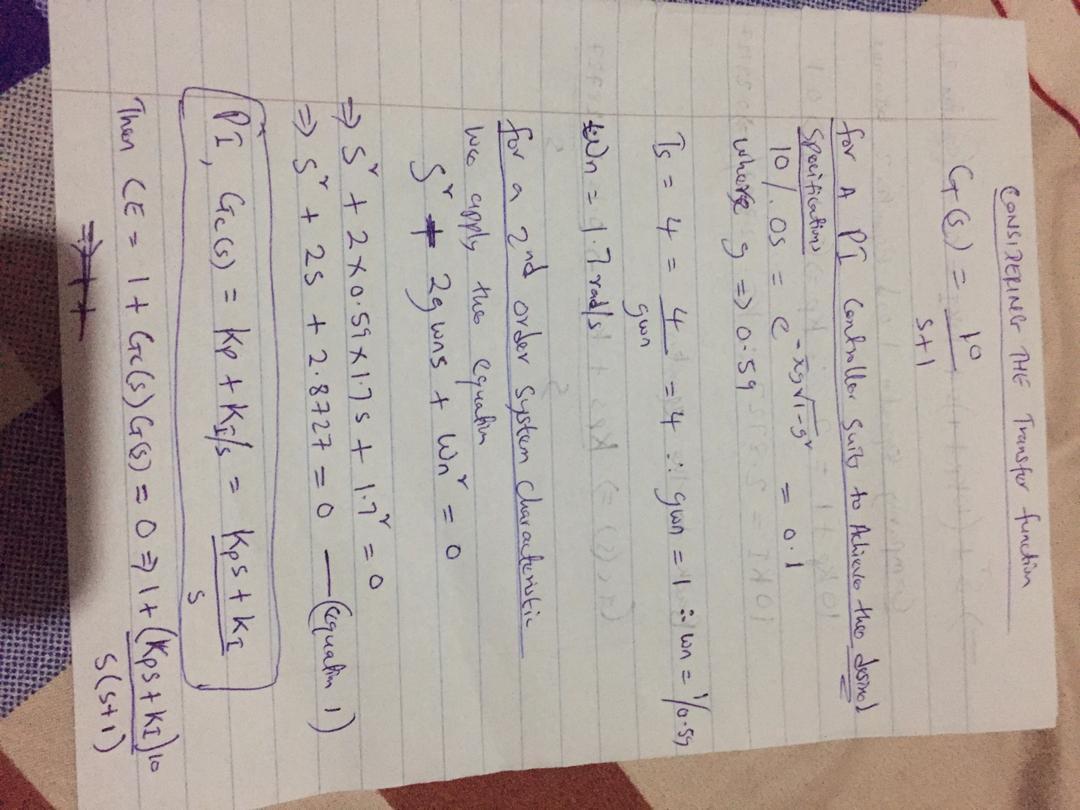 CONSIDERING THE Transfer function
G(s) = 10
s+1
for A PI Controller Suits to Achieve the desired
Specifications
10%. OS = e^-πg√1-g² = 0.1
where g => 0.59
Ts = 4 = 4/gwn = 4 ∴ gwn = 1 ∴ wn = 1/0.59
Wn = 1.7 rad/s
for a 2nd order system characteristic
we apply the equation
S² + 2gwns + Wn² = 0
=> S² + 2×0.59×1.7s + 1.7² = 0
=> S² + 2s + 2.8727 = 0 — (equation 1)
PI, Gc(s) = Kp + KI/s = Kps + KI
s
Then CE = 1 + Gc(s)G(s) = 0 => 1 + (Kps + KI)10
s(s+1)